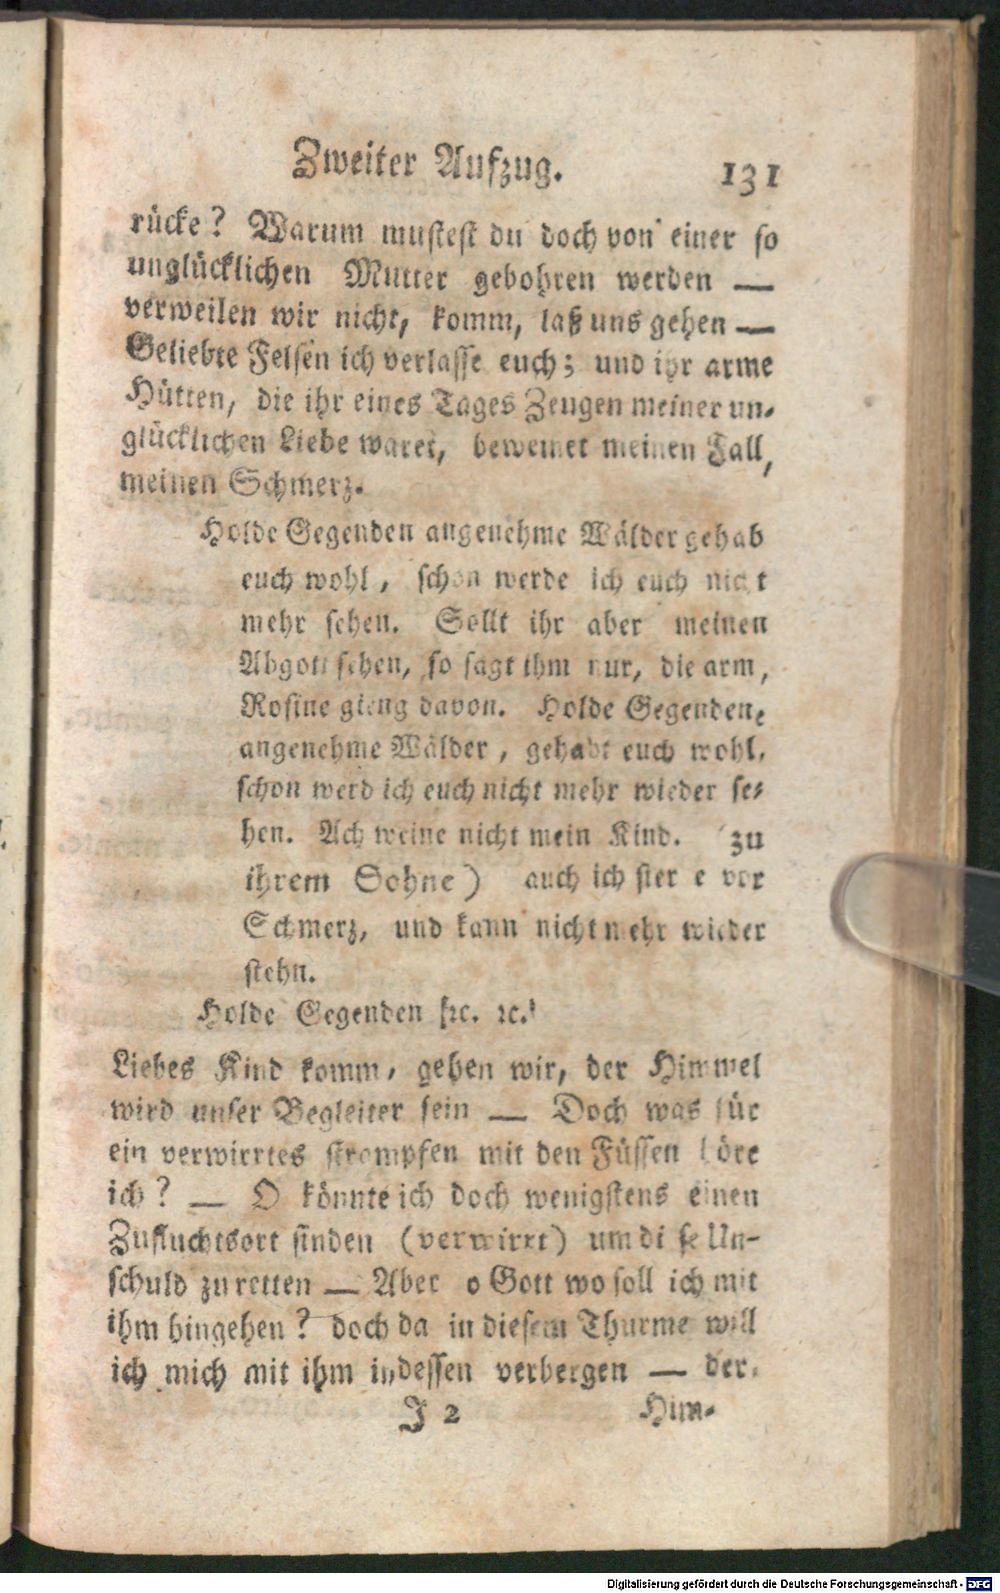 Zweiter Aufzug. 131
rücke? Warum mustest du doch von einer so
unglücklichen Mutter gebohren werden —
verweilen wir nicht, komm, laß uns gehen —
Geliebte Felsen ich verlasse euch; und ihr arme
Hütten, die ihr eines Tages Zeugen meiner un-
glücklichen Liebe waret, beweinet meinen Fall,
meinen Schmerz.
Holde Gegenden angenehme Wälder gehab
euch wohl, schon werde ich euch nicht
mehr sehen. Sollt ihr aber meinen
Abgott sehen, so sagt ihm nur, die arm,
Rosine gieng davon. Holde Gegenden,
angenehme Wälder, gehabt euch wohl,
schon werd ich euch nicht mehr wieder se-
hen. Ach weine nicht mein Kind. (zu
ihrem Sohne) auch ich sterbe vor
Schmerz, und kann nicht mehr wieder
stehn.
Holde Gegenden ꝛc. ꝛc.
Liebes Kind komm, gehen wir, der Himmel
wird unser Begleiter sein — Doch was für
ein verwirrtes strampfen mit den Füssen höre
ich? — O könnte ich doch wenigstens einen
Zufluchtsort finden (verwirrt) um diese Un-
schuld zu retten — Aber o Gott wo soll ich mit
ihm hingehen? doch da in diesem Thurme will
ich mich mit ihm indessen verbergen — der
J 2 Him-
Digitalisierung gefördert durch die Deutsche Forschungsgemeinschaft - DFG